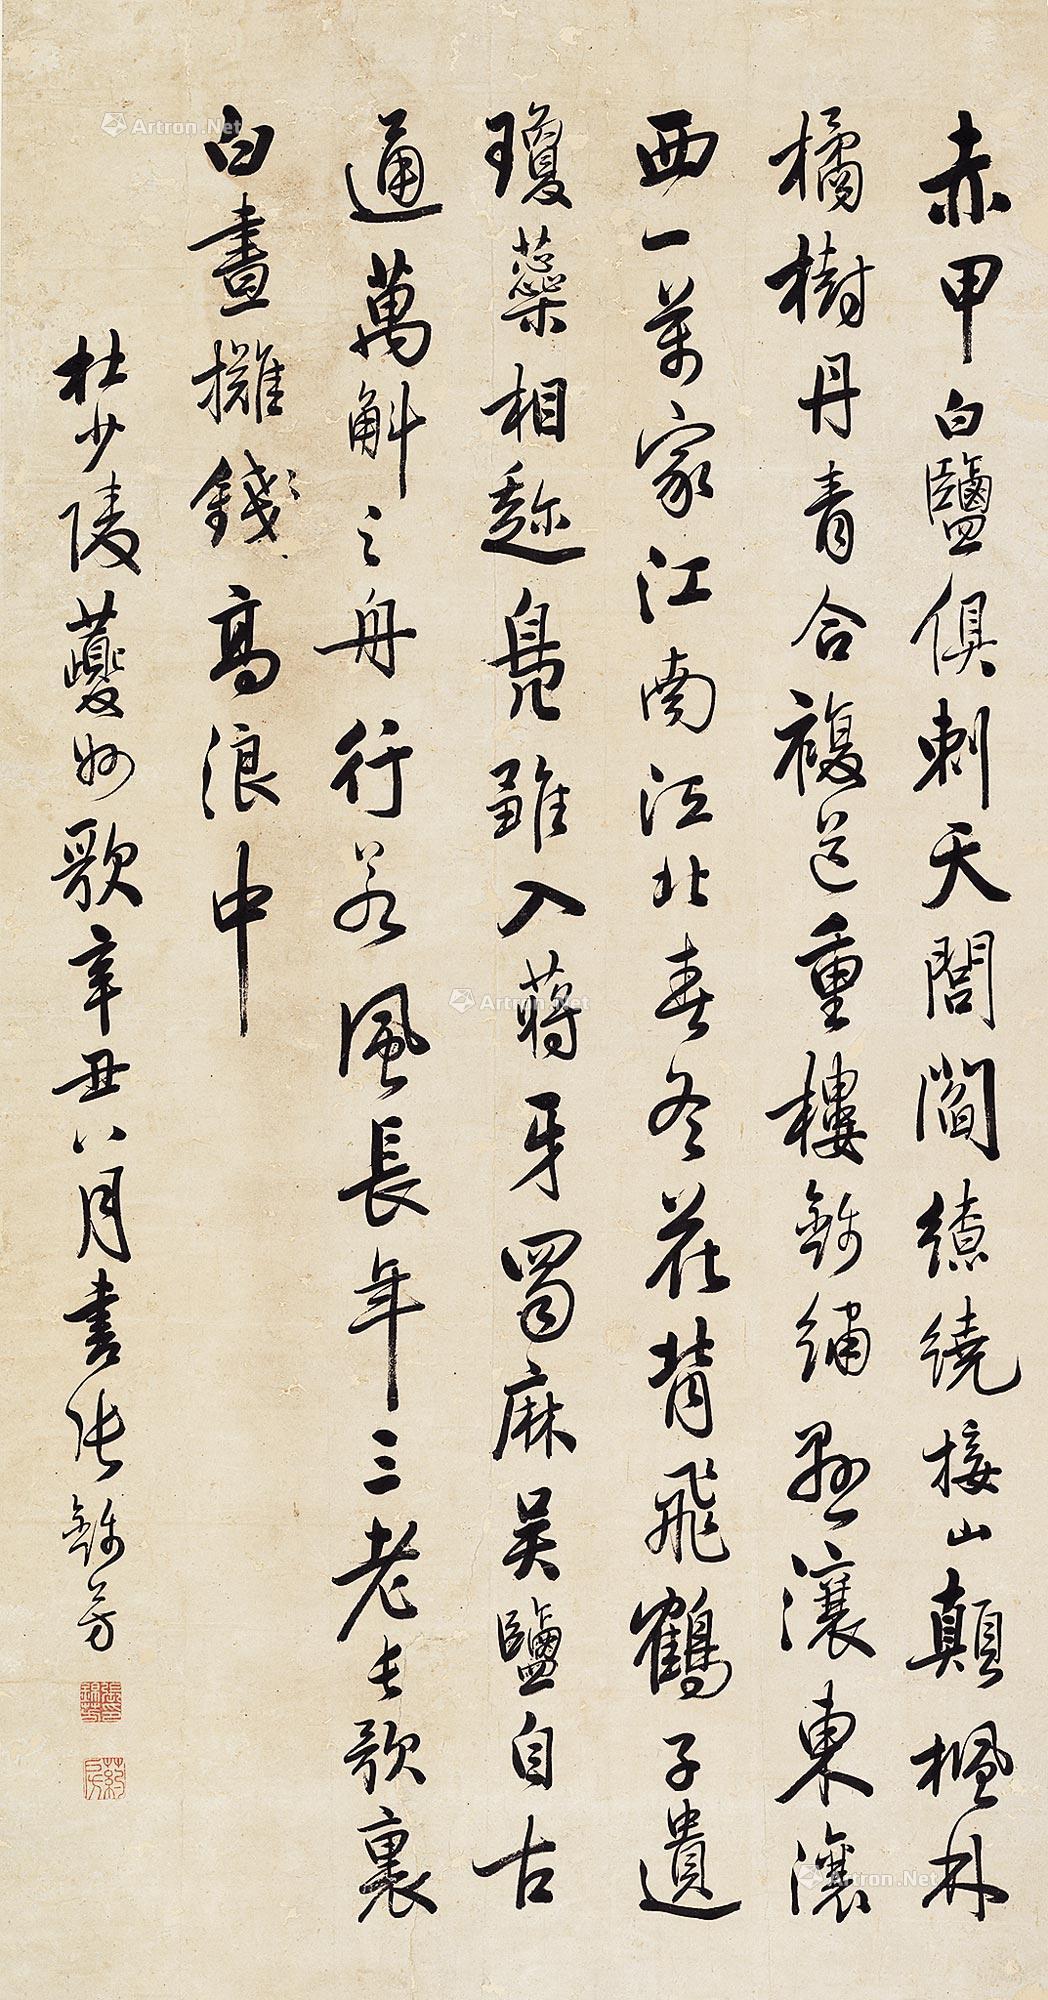 赤甲白鹽俱刺天閭閻繚繞接山顛楓林
橘樹丹青合複道重樓錦繡懸瀼東瀼
西一萬家江南江北春冬花背飛鶴子遺
瓊蘂相趂鳧雛入蔣牙蜀麻吳鹽自古
通萬斛之舟行若風長年三老長歌裏
白晝攤錢高浪中
杜少陵夔州歌辛丑八月書張錦芳
張錦芳印
藥房
Artron.Net
Artron.Net
Artron.Net